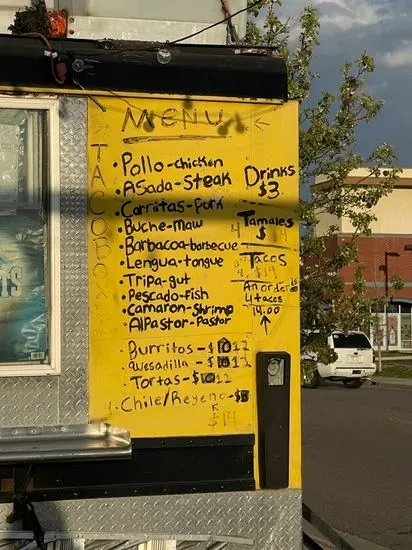 MENU
TACOBOX
Pollo-chicken
ASada-Steak
Carnitas-Pork
Buche-maw
Barbacoa-barbecue
Lengua-tongue
Tripa-gut
Pescado-fish
Camaron-Shrimp
AlPastor-Pastor
Drinks
$3
Tamales
4 $ 14
Tacos
4 $14
An order is
4 tacos
14.00
Burritos-$ 12
Quesadilla-$ 12
Tortas-$ 12
Chile/Reyeno-$
$14